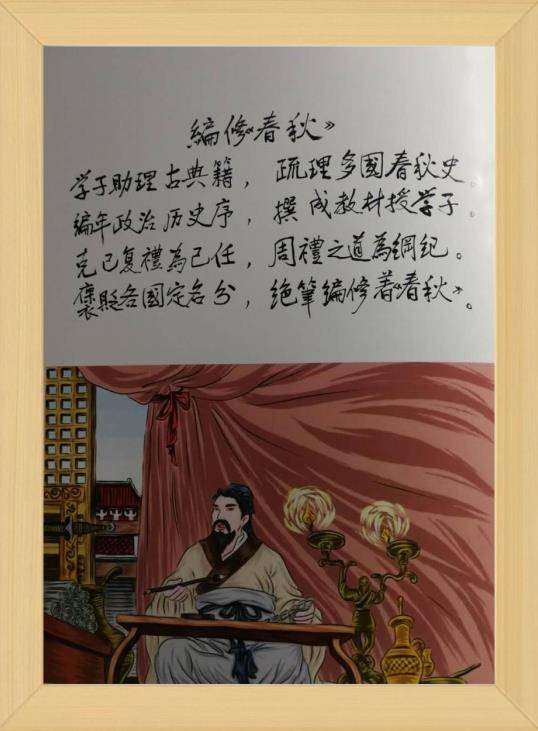 编修《春秋》
学子助理古典籍，疏理多國春秋史。
编年政治历史序，撰成教材授学子。
克己复禮為己任，周禮之道為綱纪。
褒贬各國定名分，绝筆编修著《春秋》。